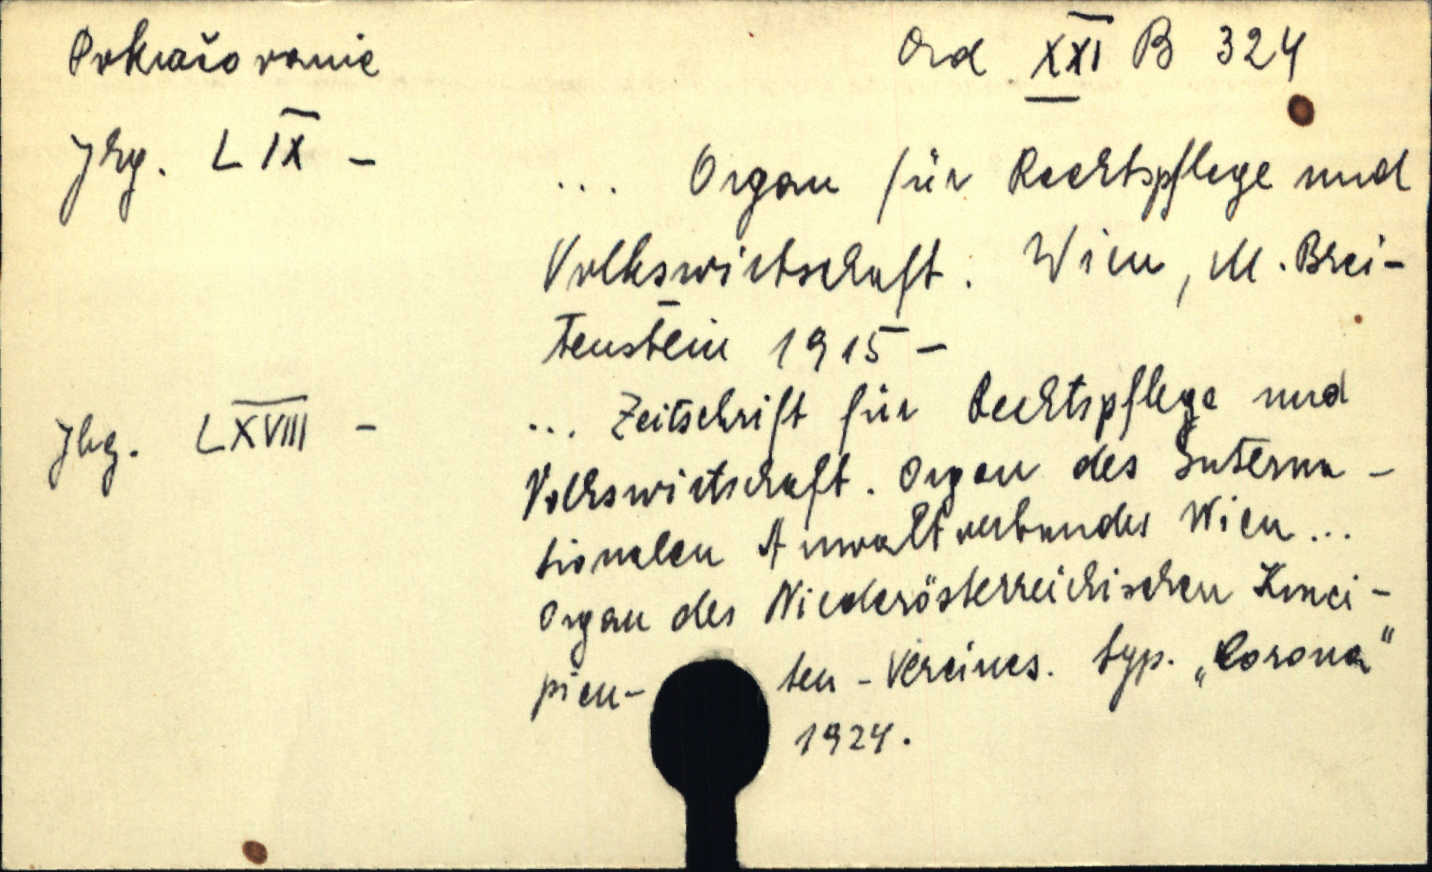 Pokračovanie Ord XXI B 324
Jhg. LIX –
... Organ für Rechtspflege und
Volkswirtschaft. Wien, M. Brei-
tenstein 1915 –
Jhg. LXVIII –
... Zeitschrift für Rechtspflege und
Volkswirtschaft. Organ des Interna-
tionalen Anwaltverbandes Wien...
Organ des Niederösterreichischen Konci-
pien- ten-Vereines. typ. „Corona"
1924.